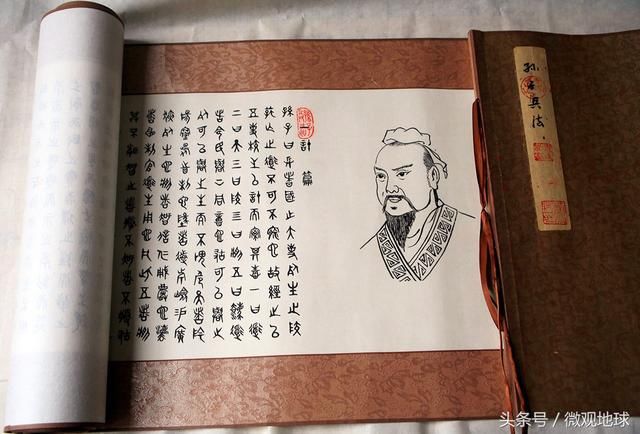 孫子兵法
計篇
孫子曰兵者國之大事死生之地
存亡之道不可不察也故經之以
五事校之以計而索其情一曰道
二曰天三曰地四曰將五曰法道
者令民與上同意也故可以與之
死可以與之生而不畏危天者陰
陽寒暑時制也地者遠近險易廣
狹死生也將者智信仁勇嚴也法
者曲制官道主用也凡此五者將
莫不聞知之者勝不知者不勝故
头条号／微观地球